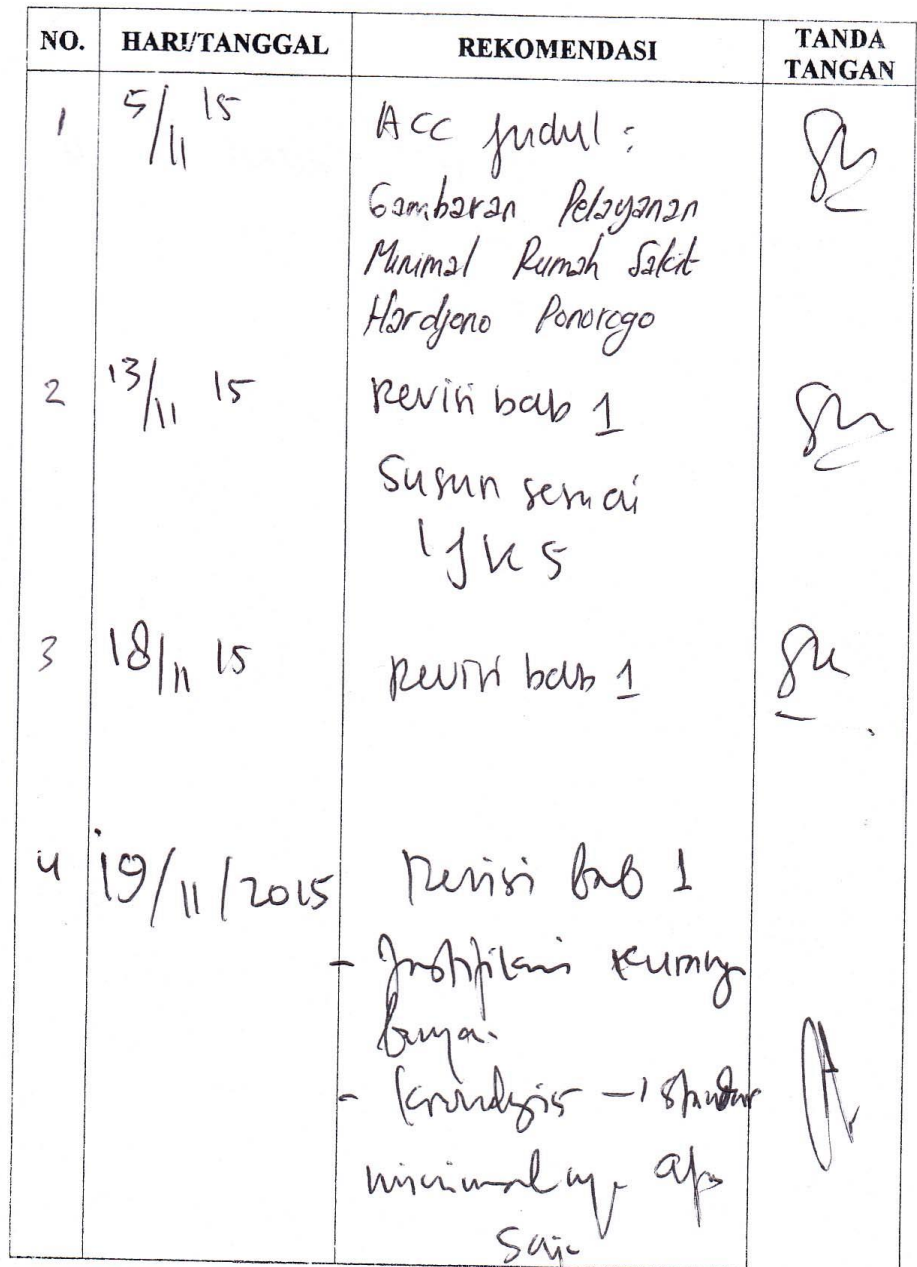 NO. HARI/TANGGAL REKOMENDASI TANDA TANGAN
1 5/11 15 ACC judul :
Gambaran Pelayanan
Minimal Rumah Sakit
Hardjono Ponorogo
2 13/11 15 Revisi bab 1
Susun sesuai
IJKS
3 18/11 15 Revisi bab 1
4 19/11/2015 Revisi bab 1
- Justifikasi kurang
- Kronologis → standar
minimalnya apa
saja